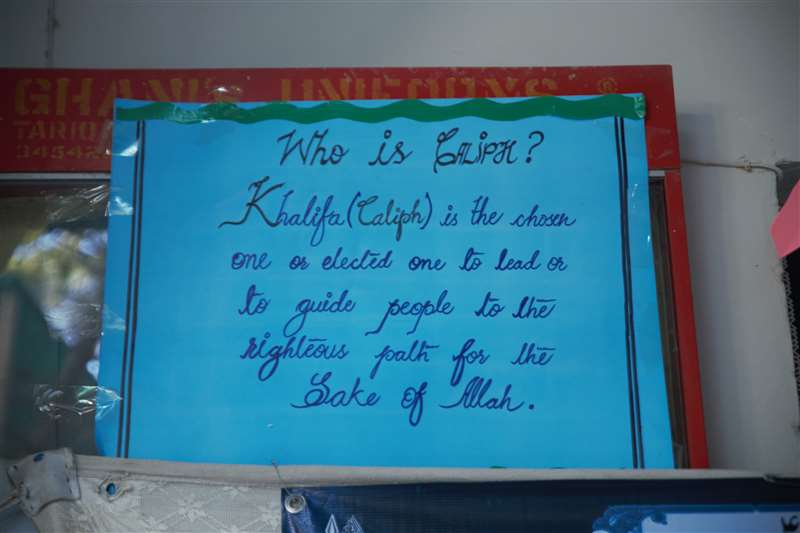 GHANI UNIFORMS ®
TARIQ
34542
Who is CALIPH?
Khalifa (Caliph) is the chosen
one or elected one to lead or
to guide people to the
righteous path for the
Sake of Allah.